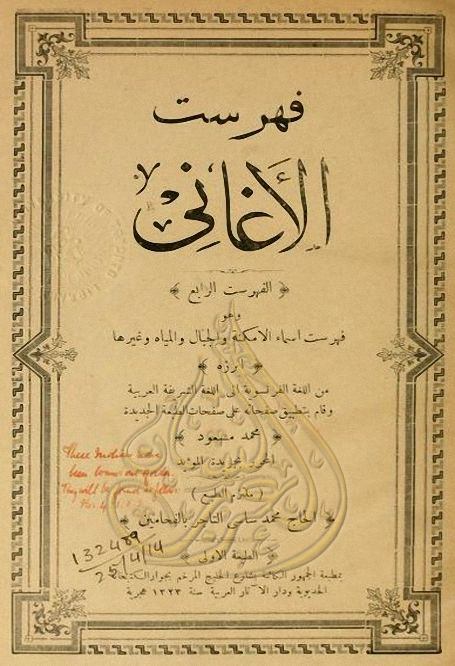 فهرست
الأغاني
﴿ الفهرست الرابع ﴾
وهو
فهرست أسماء الامكنة والجبال والمياه وغيرها
﴿ أبرزه ﴾
من اللغة الفرنسوية الى اللغة الشريفة العربية
وقام بتطبيق صفحاته على صفحات الطبعة الجديدة
﴿ محمد مسعود ﴾
المحرر بجريدة المؤيد
( ملتزم الطبع )
﴿ الحاج محمد ساسى التاجر بالفحامين ﴾
﴿ الطبعة الاولى ﴾
بمطبعة الجمهور الكائنة بشارع الخليج المرخم بجوار
الخديوية ودار الآثار العربية سنة ١٣٢٣ هجرية
These
been
They will be
132489
25/4/14